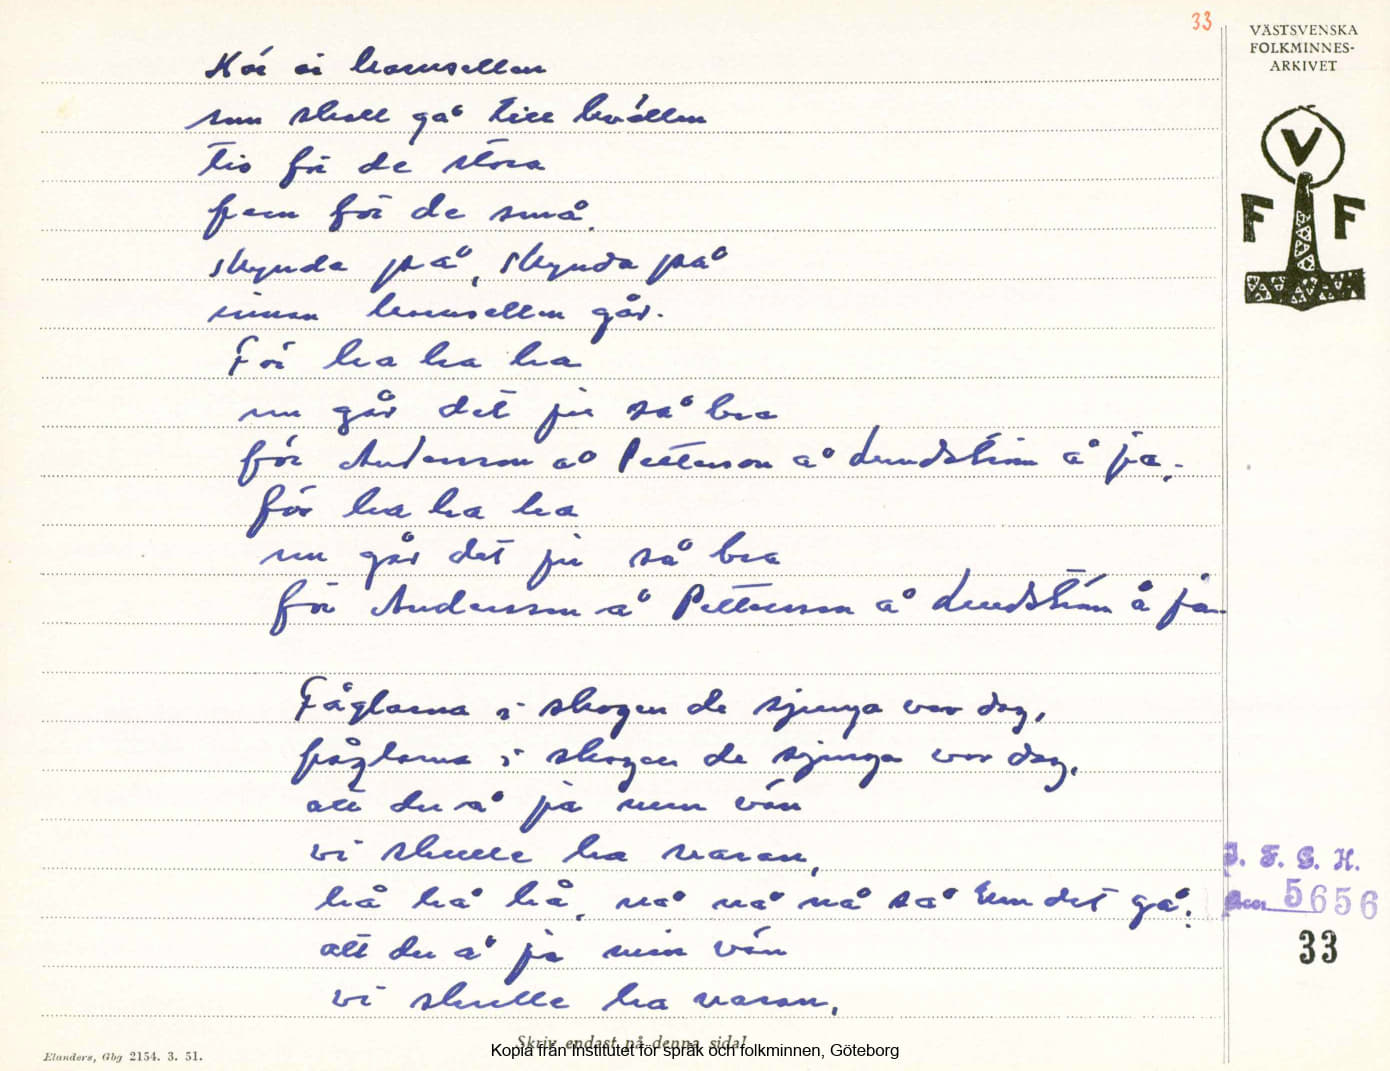 33
VÄSTSVENSKA
FOLKMINNES-
ARKIVET
V
F F
Här är karusellen
som skall gå till kvällen
tio för de stora
fem för de små.
skynda på, skynda på
innan karusellen går.
För ha ha ha
nu går det ju så bra
för Andersson å Petterson å Lundström å ja.
för ha ha ha
nu går det ju så bra
för Andersson å Petterson å Lundström å ja.
Fåglarna i skogen de sjunga var dag,
fåglarna i skogen de sjunga var dag,
att du å ja min vän
vi skulle ha varan,
hå hå hå, nå nå nå så kun det gå.
att du å ja min vän
vi skulle ha varan,
I. F. G. H.
Acc. 5656
33
Skriv endast på denna sida!
Elanders, Gbg 2154. 3. 51.
Kopia från Institutet för språk och folkminnen, Göteborg